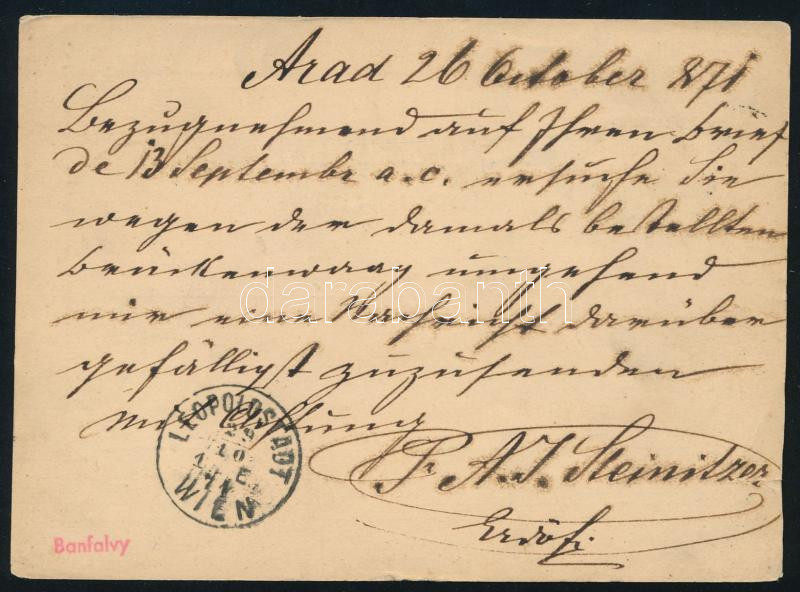 Arad 26 October 871
Bezugnehmend auf Ihren Brief
de 13 Septembr a.c. ersuche Sie
wegen der damals bestellten
Brückenwaag umgehend
mir eine Nachricht darüber
gefälligst zuzusenden
mit Achtung
Pr A. J. Steinitzer
Erdöfi
LEOPOLDSTADT
WIEN
Banfalvy
darabanth